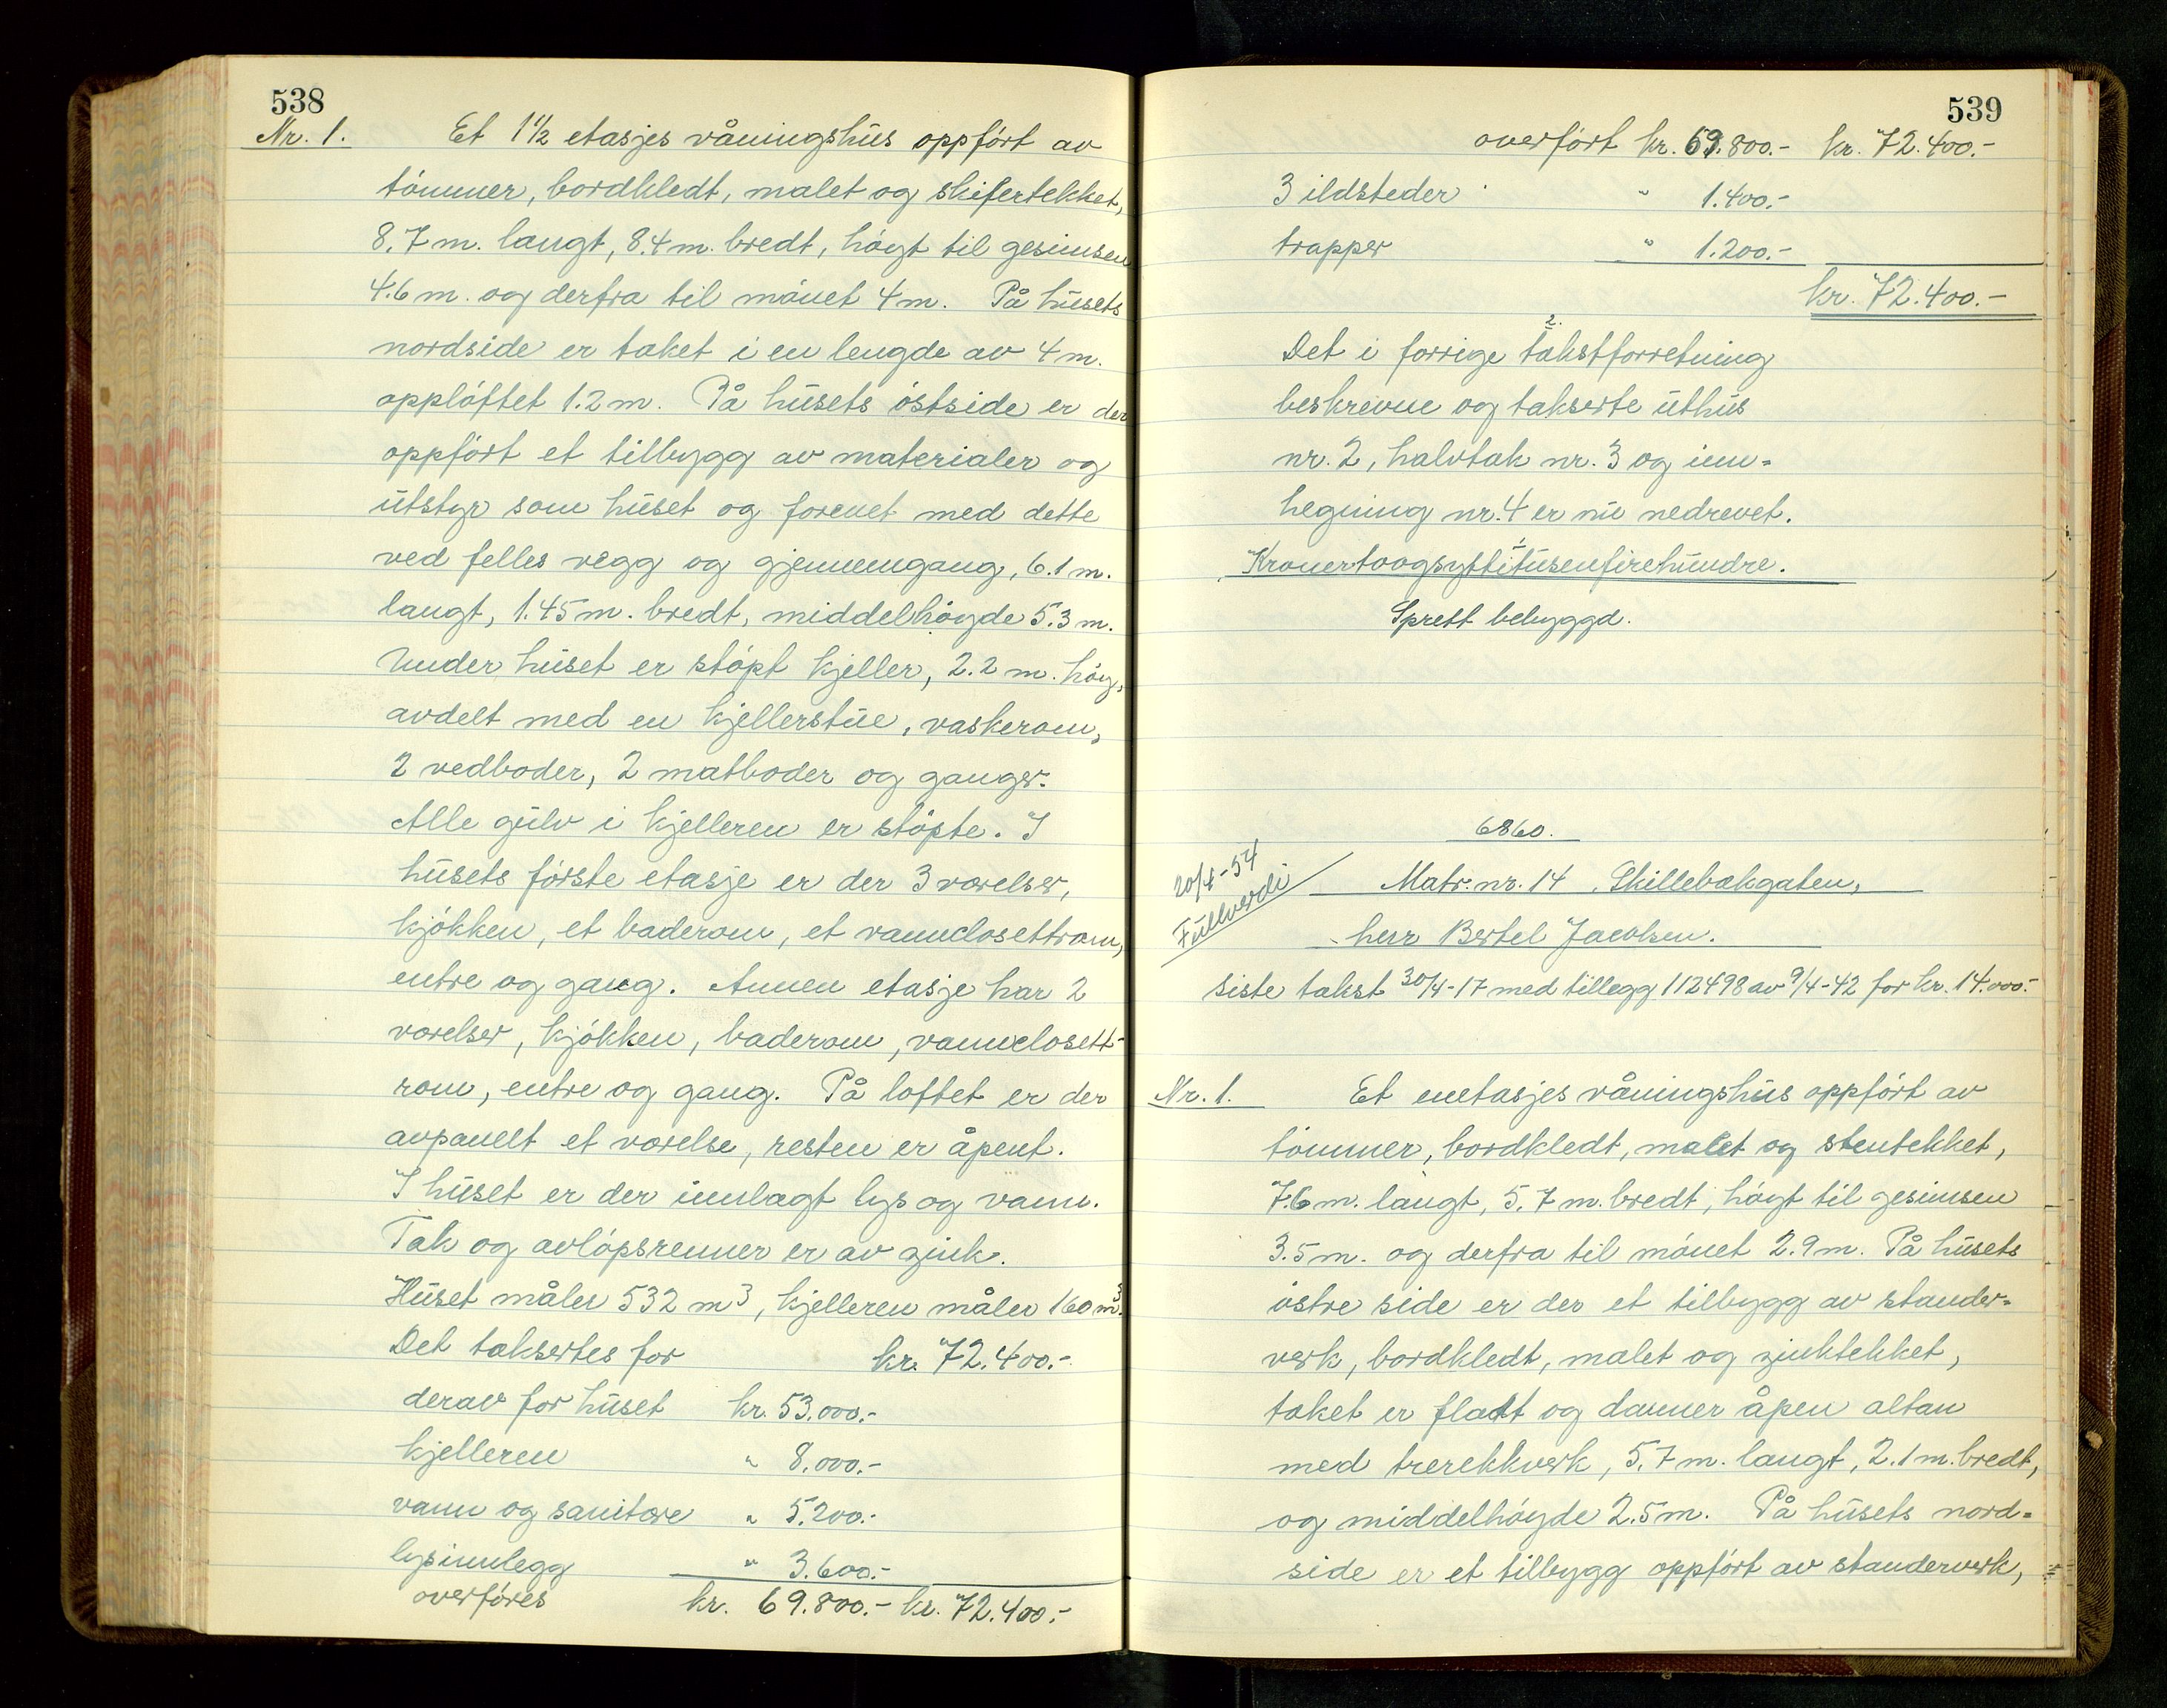 538
Nr. 1. Et 1 1/2 etasjes våningshus oppført av
tømmer, bordkledt, malet og skifertekket,
8.7 m. langt, 8.4 m. bredt, høgt til gesimsen
4.6 m. og derfra til mønet 4 m. På husets
nordside er taket i en lengde av 4 m.
oppløftet 1.2 m. På husets østside er der
oppført et tilbygg av materialer og
utstyr som huset og forenet med dette
ved felles vegg og gjennemgang, 6.1 m.
langt, 1.45 m. bredt, middelhøyde 5.3 m.
Under huset er støpt kjeller, 2.2 m. høg,
avdelt med en kjellerstue, vaskerom,
2 vedboder, 2 matboder og ganger.
Alle gulv i kjelleren er støpte. I
husets første etasje er der 3 værelser,
kjøkken, et baderom, et vannclosettrom,
entre og gang. Annen etasje har 2
værelser, kjøkken, baderom, vannclosett-
rom, entre og gang. På loftet er der
avpanelt et værelse, resten er åpent.
I huset er der innlagt lys og vann.
Tak og avløpsrenner er av zink.
Huset måler 532 m3, kjelleren måler 160 m3.
Det taksertes for kr. 72.400.-
derav for huset kr. 53.000.-
kjelleren " 8.000.-
vann og sanitære " 5.200.-
lysinnlegg " 3.600.-
overføres kr. 69.800.- kr. 72.400.-
539
overført kr. 69.800.- kr. 72.400.-
3 ildsteder " 1.400.-
trapper " 1.200.-
kr. 72.400.-
2.
Det i forrige takstforretning
beskrevne og takserte uthus
nr. 2, halvtak nr. 3 og inn=
hegning nr. 4 er nu nedrevet.
Kronertoogsyttitusenfirehundre.
Sprett bebyggd.
6860.
20/4-54
Fullverdi
Matr. nr. 14, Skillebækgaten,
herr Bertel Jacobsen.
siste takst 30/4-17 med tillegg 112498 av 9/4-42 for kr. 14.000.-
Nr. 1. Et enetasjes våningshus oppført av
tømmer, bordkledt, malet og stentekket,
7.6 m. langt, 5.7 m. bredt, høgt til gesimsen
3.5 m. og derfra til mønet 2.9 m. På husets
østre side er der et tilbygg av stander=
verk, bordkledt, malet og zinktekket,
taket er flatt og danner åpen altan
med trerekkverk, 5.7 m. langt, 2.1 m. bredt,
og middelhøyde 2.5 m. På husets nord=
side er et tilbygg oppført av standerverk,